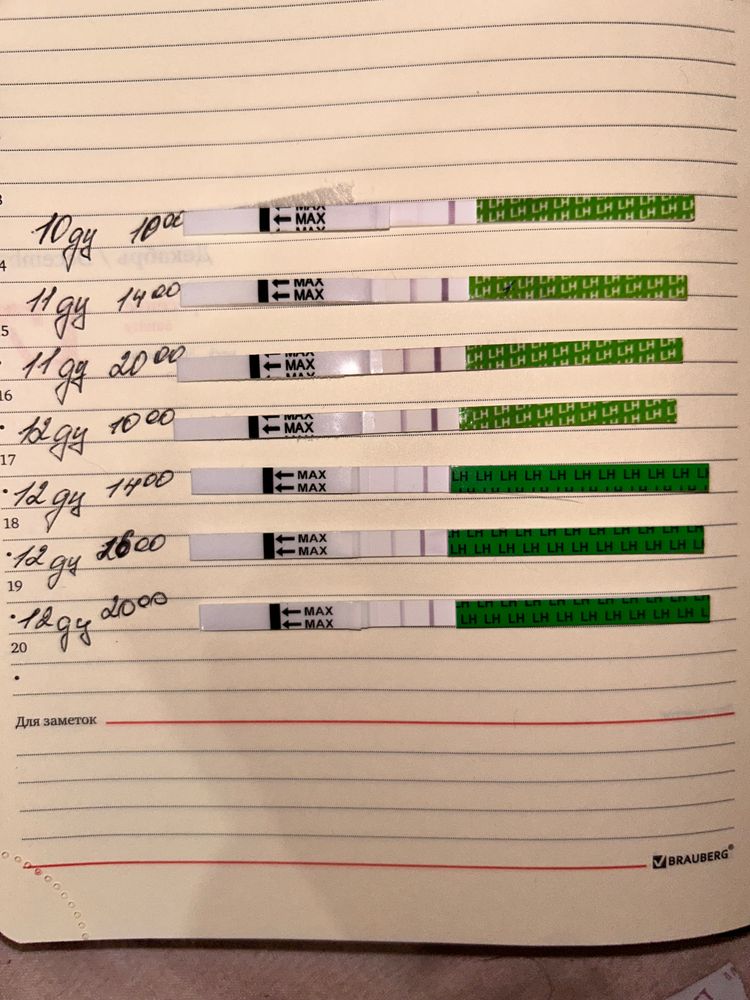 10 ду 10⁰⁰ ← MAX LH LH LH LH LH LH LH
11 ду 14⁰⁰ ← MAX ← MAX LH LH LH LH LH LH LH
11 ду 20⁰⁰ ← MAX LH LH LH LH LH LH LH
12 ду 10⁰⁰ ← MAX LH LH LH LH LH LH LH
17
12 ду 14⁰⁰ ← MAX ← MAX LH LH LH LH LH LH LH LH LH LH
18
12 ду 16⁰⁰ ← MAX ← MAX LH LH LH LH LH LH LH LH LH
19
12 ду 20⁰⁰ ← MAX ← MAX LH LH LH LH LH LH LH LH LH
20
Для заметок
BRAUBERG®